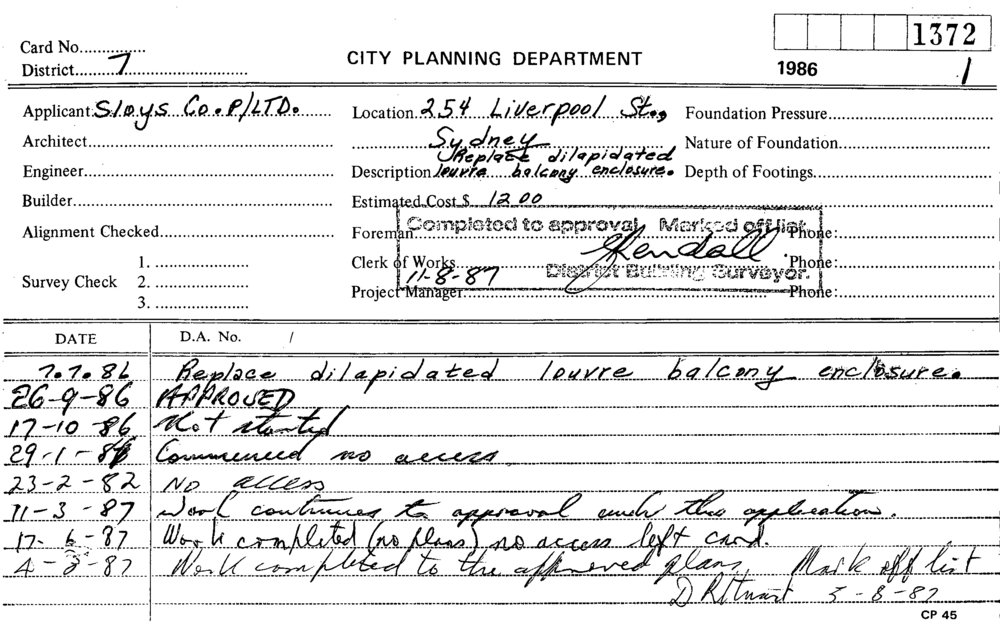 Card No...............
1372
District 7
CITY PLANNING DEPARTMENT
1986
1
Applicant Sloys Co. P/LTD.
Location 254 Liverpool St.,
Foundation Pressure
Architect
Sydney
Nature of Foundation
Replace dilapidated
Engineer
Description louvre balcony enclosure.
Depth of Footings
Builder
Estimated Cost $ 1200
Completed to approval. Marked off list.
Alignment Checked
Foreman
Phone:
Kendall
Clerk of Works
Phone:
11-8-87
District Building Surveyor.
Survey Check
1.
2.
3.
Project Manager
Phone:
DATE
D.A. No. /
7.7.86 Replace dilapidated louvre balcony enclosure.
26-9-86 APPROVED
17-10-86 Not started
29-1- Commenced no access.
23-2-82 NO access
11-3-87 Work continues to approval under this application.
17-6-87 Work completed (no plans) no access left card.
4- -87 Work completed to the approved plans Mark off list
D R Stuart 5-8-87
CP 45